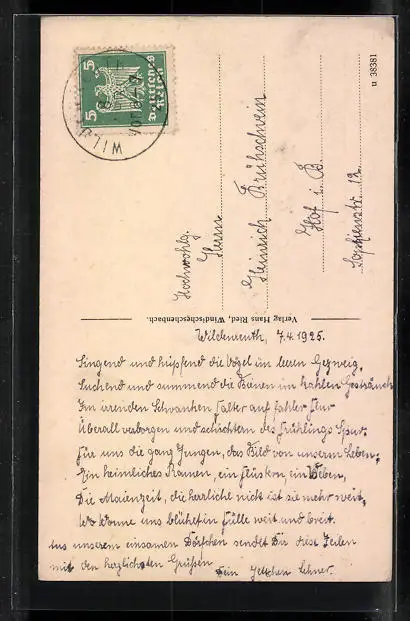 5 5
Deutsches
Reich
WIL
VORM
u 38381
Hochwohlg.
Herrn
Heinrich Brühschwein
Hof i. B.
Sophienstr. 12
Verlag Hans Ried, Windischeschenbach.
Wildenreuth, 7.4.1925.
Singend und hüpfend die Vögel im leeren Gezweig,
Suchend und summend die Bienen im kahlen Gesträuch
Im irrenden Schwanken Falter auf fahler Flur
Überall verborgen und schüchtern des Frühlings Spur.
Für uns die ganz Jungen, das Bild von unserem Leben:
Ein heimliches Raunen, ein Flüstern, ein Weben,
Die Maienzeit, die herrliche nicht ist sie mehr weit,
Wo Wonne uns blühet in Fülle weit und breit.
Aus unserem einsamen Dörfchen sendet Dir diese Zeilen
mit den herzlichsten Grüßen
Dein Lehner.